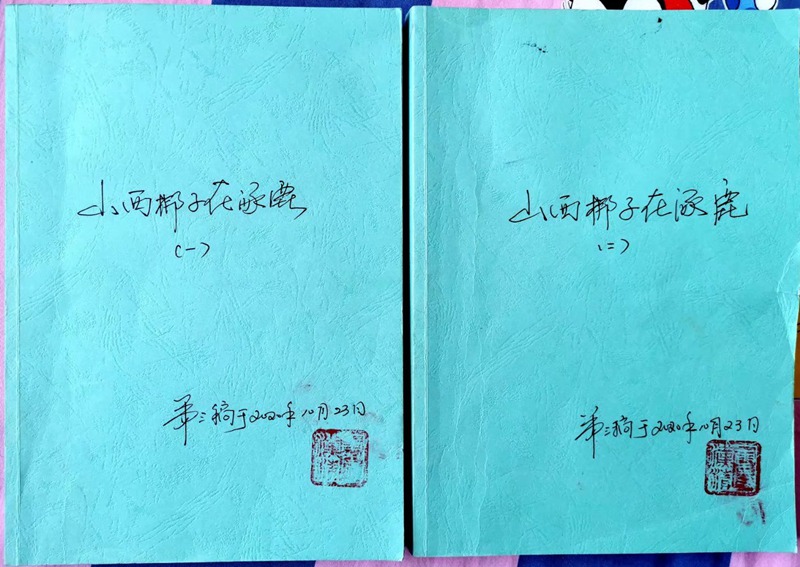 山西梆子在涿鹿
(一)
第三稿于2020年10月23日
山西梆子在涿鹿
(二)
第三稿于2020年10月23日